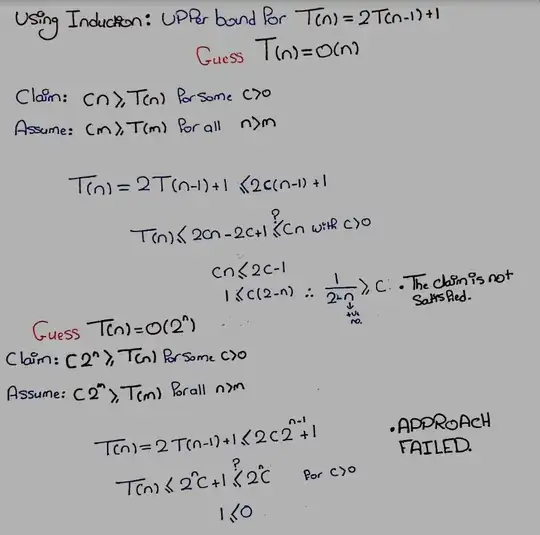 Using Induction: UPPer bound For T(n) = 2T(n-1)+1
Guess T(n)=O(n)
Claim: cn ⩾ T(n) For some c>0
Assume: cm ⩾ T(m) For all n>m
T(n) = 2T(n-1)+1 ⩽ 2c(n-1)+1
T(n) ⩽ 2cn-2c+1 ⩽? cn with c>0
cn ⩽ 2c-1
1 ⩽ c(2-n) ∴ 1/(2-n) ⩾ c. • The claim is not
satisfied.
↓
+ve
no.
Guess T(n)=O(2ⁿ)
Claim: c2ⁿ ⩾ T(n) For some c>0
Assume: c2ᵐ ⩾ T(m) For all n>m
T(n) = 2T(n-1)+1 ⩽ 2c2ⁿ⁻¹+1
• APPROACH
FAILED.
T(n) ⩽ 2ⁿc+1 ⩽? 2ⁿc For c>0
1 ⩽ 0